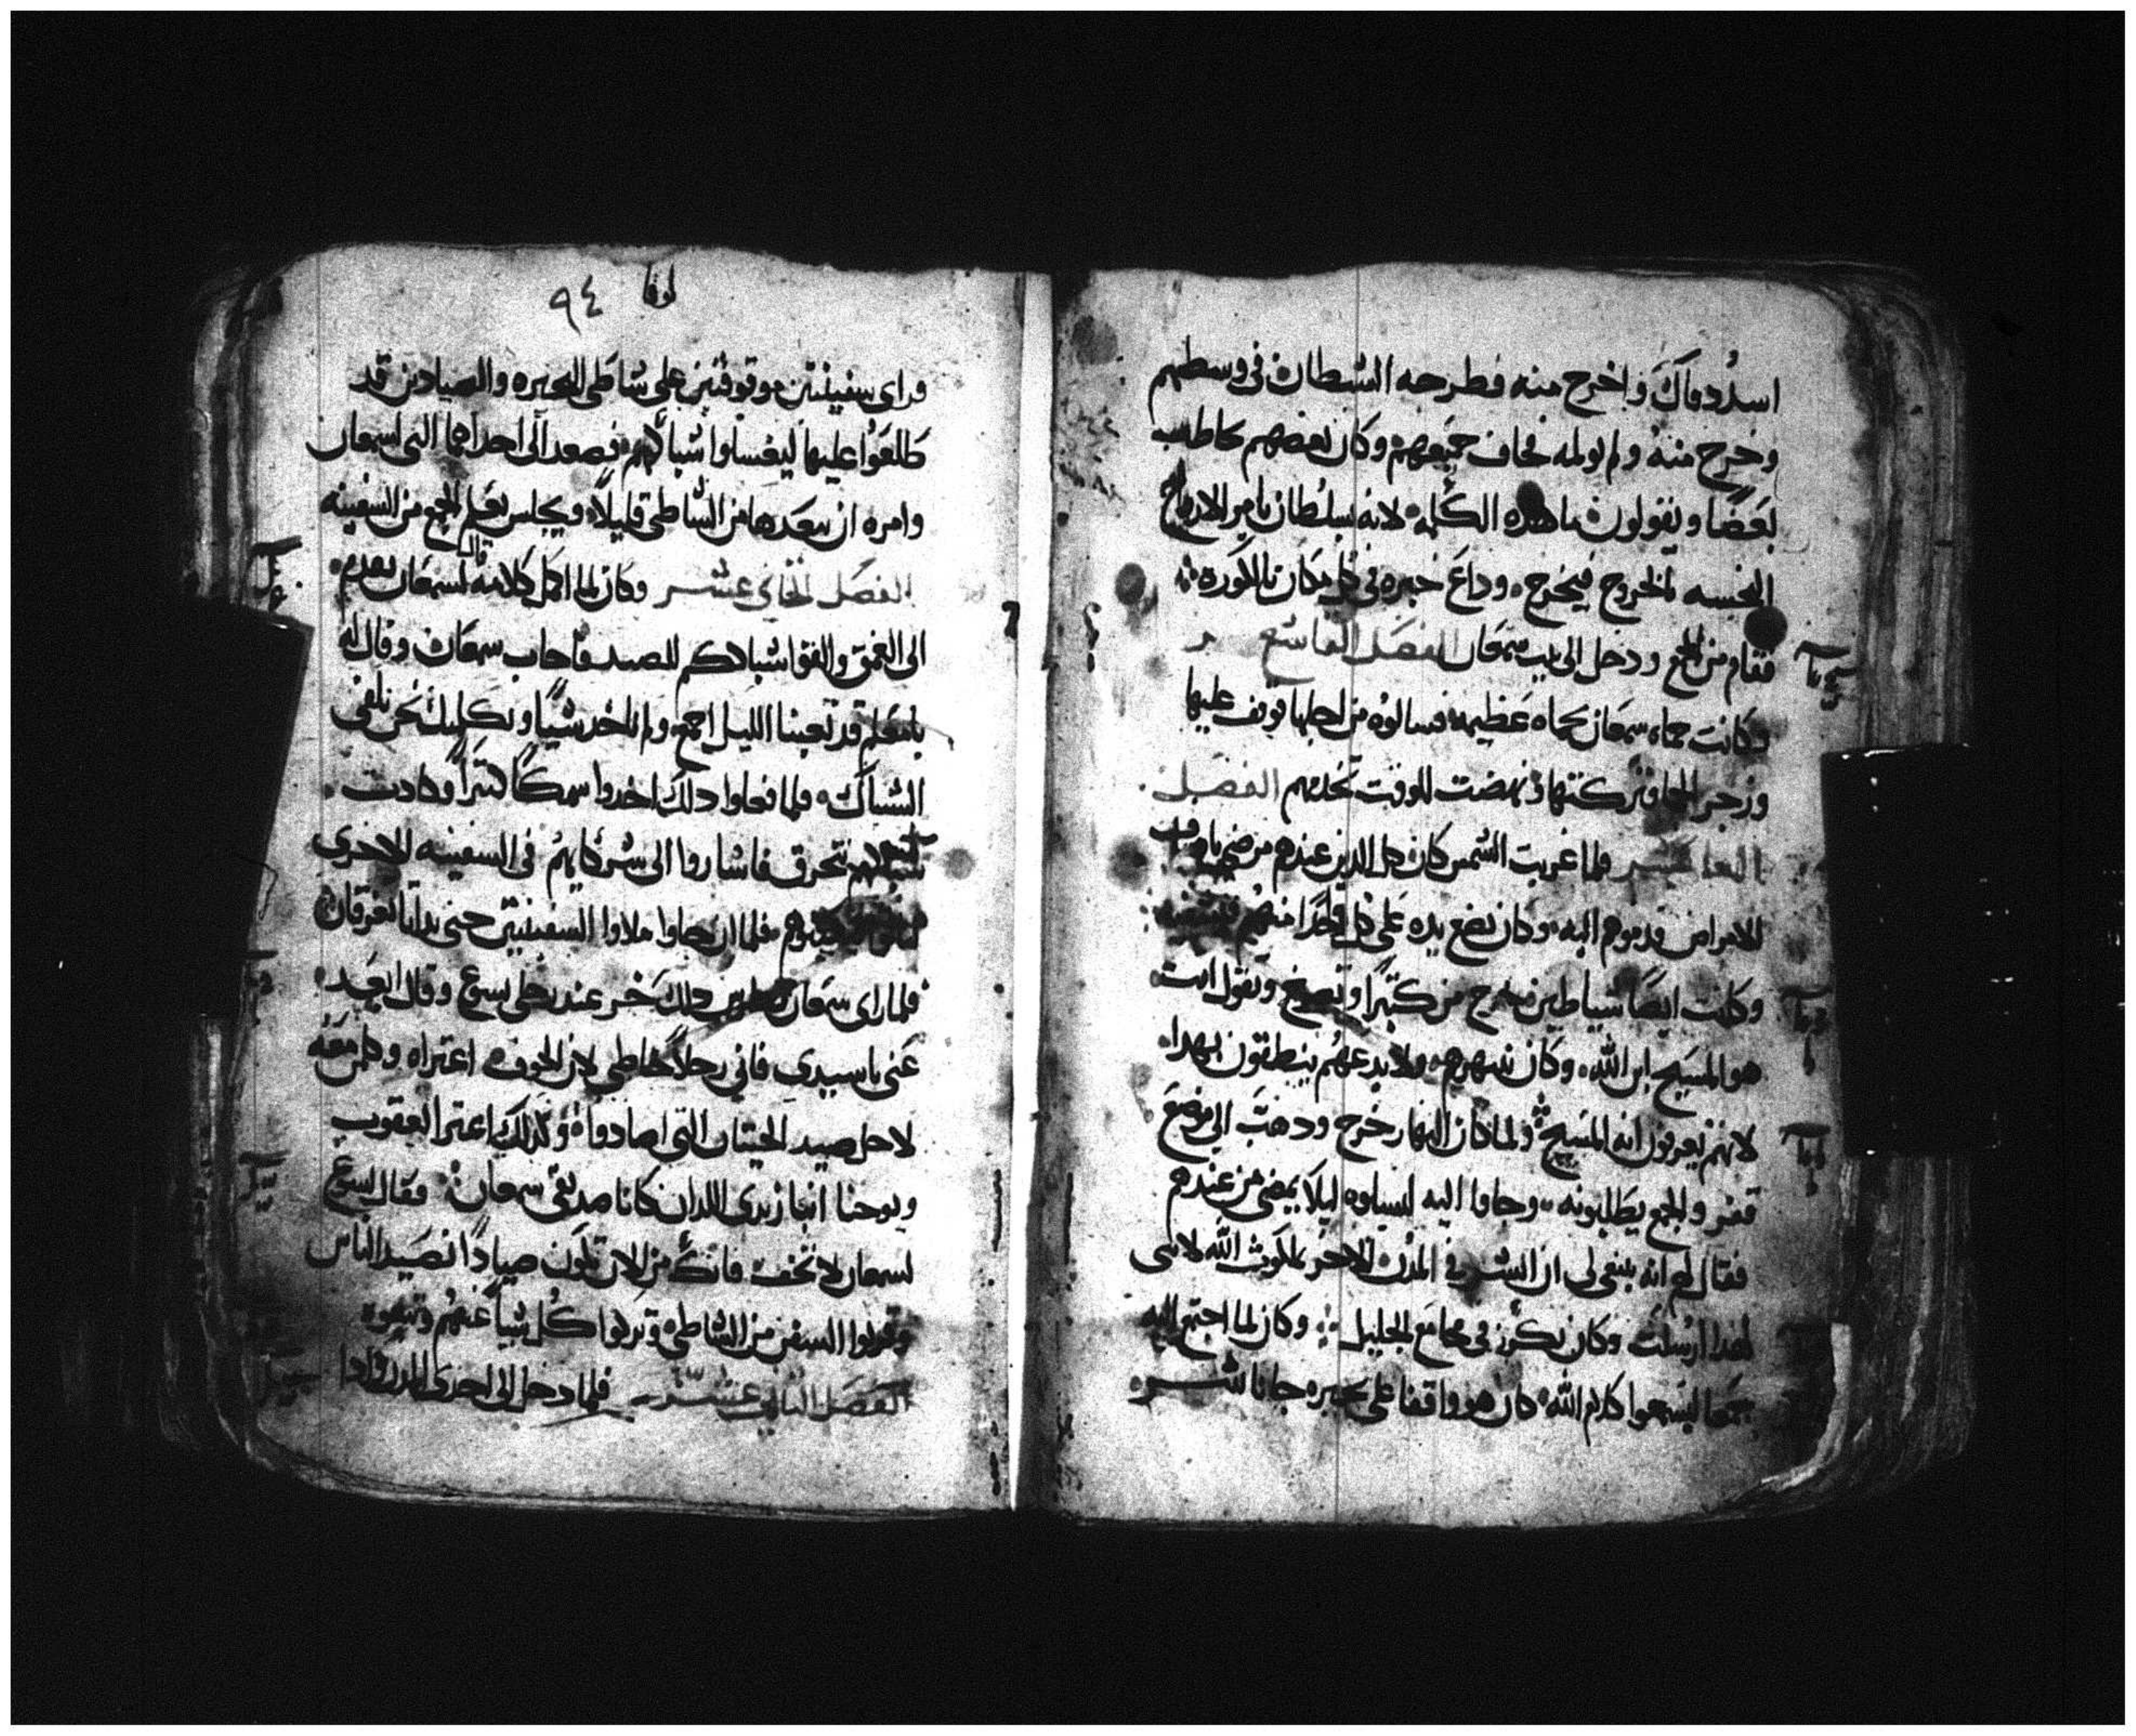 اسدُد فاكَ واخرج منه فطرحه الشيطان فى وسطهم
وخرج منهُ ولم يولمه فخاف جميعهم وكان بعضهم يخاطب
بعضًا ويقولون ما هذه الكلمه لانه بسلطان يامر الارواح
النجسه بالخروج فيخرج وداع خبره فى كل مكان بالكوره
فقام من الجمع ودخل الى بيت سمعان الفصل التاسع
وكانت حماه سمعان بحماه عظيمه فسالوه من اجلها فوقف عليها
وزجر الحما فتركتها ونهضت للوقت تخدمهم الفصل
العاشر ولما غربت الشمس كان كل الذين عندهم مرضى
الامراض قدموهم اليه وكان يضع يده على كل واحدًا منهم
وكانت ايضًا شياطين تخرج من كتيرًا وتصيح وتقول انت
هو المسيح ابن الله وكان ينهرهم ولا يدعهُم ينطقون بهدا
لانهم يعرفون انه المسيح ولما كان النهار خرج ودهب الى موضع
قفر والجمع يطلبونه وجاوا اليه ليمسكوه ليلا يمضى من عندهم
فقال لهم انه ينبغى لى ان ابشر فى المدن الاخر بملكوت الله لانى
لهدا ارسلت وكان يكرز فى مجامع الجليل وكان لما اجتمع اليه
جمعا ليسمعوا كلام الله كان هو واقفا على بحيره جاناشر
لوقا ٩٤
وراى سفينتين موقوفتين على شاطى البحيره والصيادين قد
طلعوا عليها ليغسلوا شباكهم فصعد الى احداهما التى لسمعان
وامره ان يبعدها من الشاطى قليلًا وجلس يعلم الجمع من السفينه
الفصل الحادى عشر وكان لما اكمل كلامه قال لسمعان تقدم
الى العمق والقوا شباككم للصيد فاجاب سمعان وقال له
يا معلم قد تعبنا الليل اجمع ولم ناخد شيًا وبكلمتك نحن نلقى
الشباك فلما فعلوا دلك اخدوا سمكًا كتيرًا وكادت
شباكهم تتخرق فاشاروا الى شركايهم فى السفينه الاخرى
فلما ان جاوا ملاوا السفينتين حتى بداتا تغرقان
فلما راى سمعان دلك خر عند رجلى يسوع وقال ابعد
عنى يا سيدى فانى رجلًا خاطى لان الخوف اعتراه وكل من معه
لاجل صيد الحيتان التى اصادوها وكدلك اعترا يعقوب
ويوحنا ابنا زبدى اللدان كانا صديقى سمعان فقال يسوع
لسمعان لا تخف فانك من الان تكون صيادًا تصيد الناس
وقربوا السفن من الشاطى وتركوا كل شياً عنهُم وتبعوه
الفصل التانى عشر فلما دخل الى احدى المدن وادا